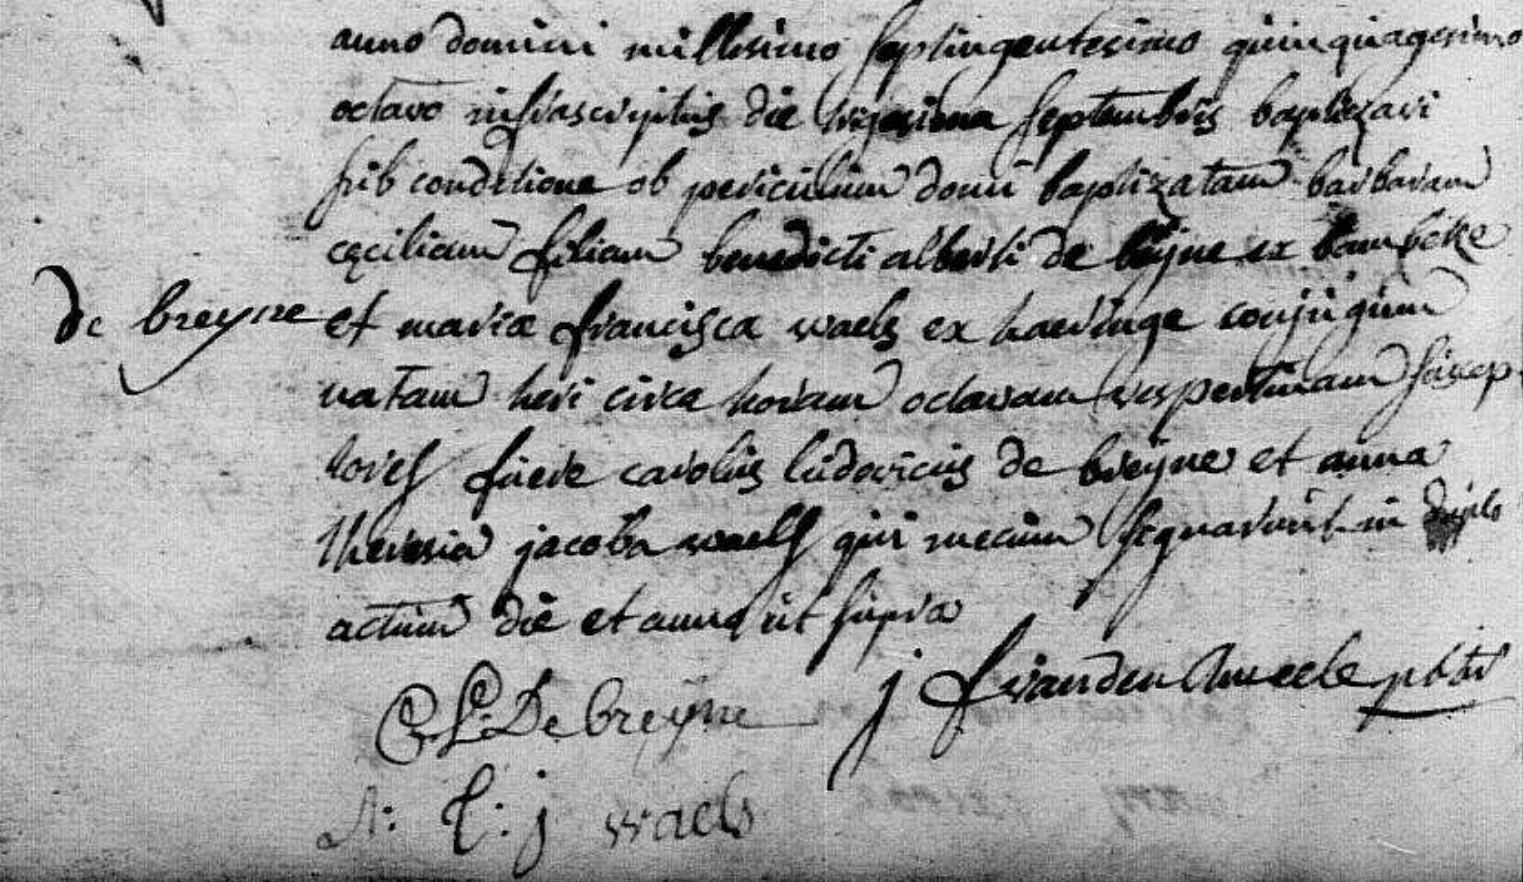 anno domini millesimo septingentesimo quinquagesimo
octavo infrascriptus die vigesima septembris baptizavi
sub conditione ob periculum domi baptizatam barbaram
cæciliam filiam benedicti alberti de breyne ex bambeke
de breyne
et mariæ francisca waels ex haeringe conjugum
natam heri circa horam octavam vespertinam suscep-
tores fuere carolus ludovicus de breyne et anna
theresia jacoba waels qui mecum signarunt in duplo
actum die et anno ut supra
j f vanden Ameele pbter
C: L: De breyne
A: T: j waels